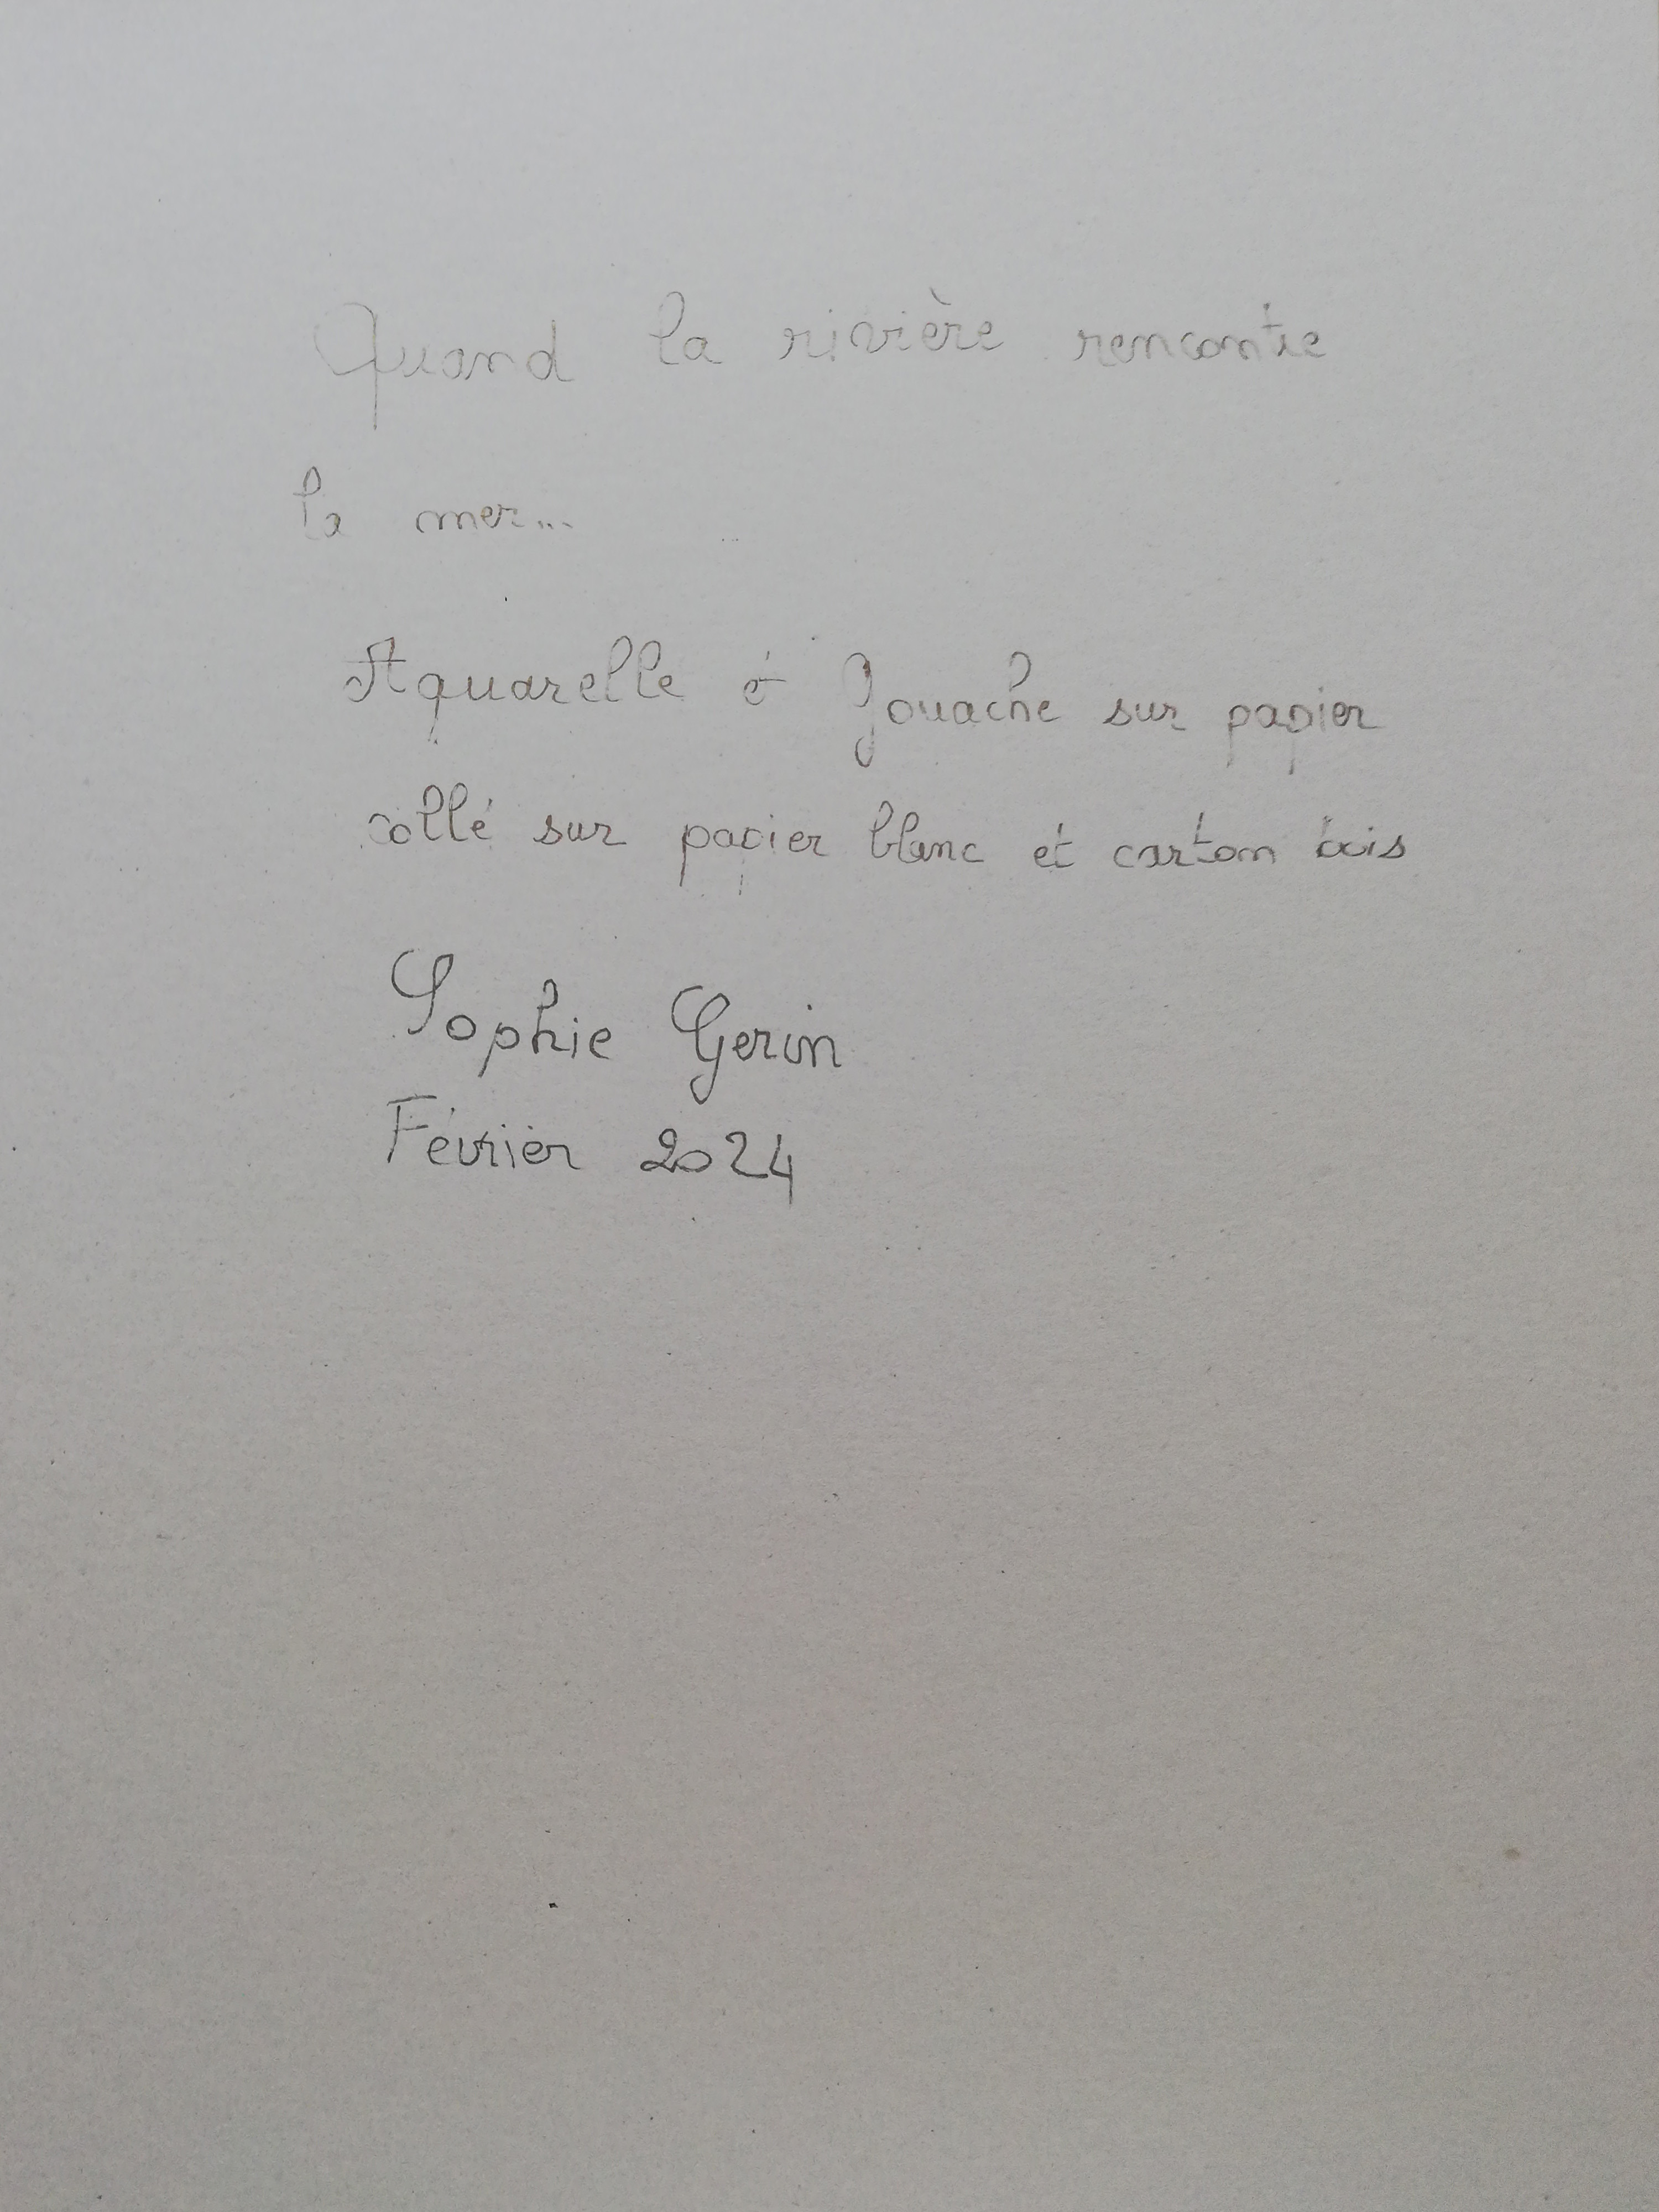 Quand la rivière rencontre
la mer...
Aquarelle et gouache sur papier
collé sur papier blanc et carton bois
Sophie Gerin
Février 2024